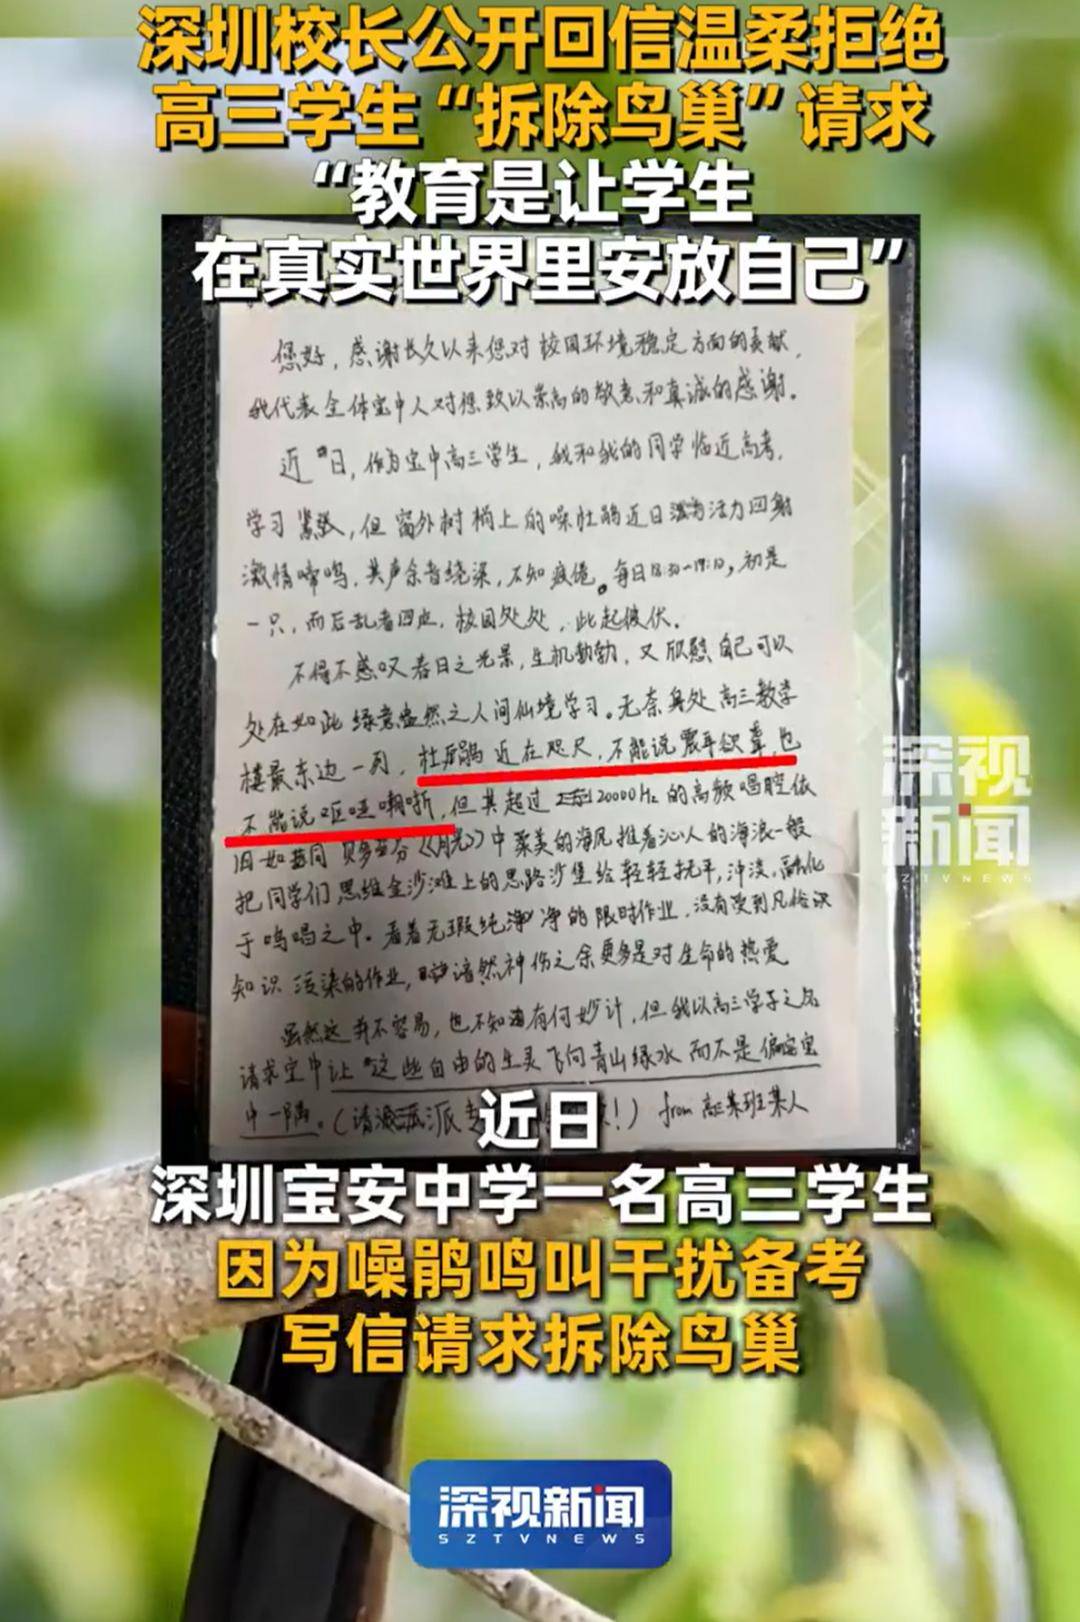 深圳校长公开回信温柔拒绝
高三学生“拆除鸟巢”请求
“教育是让学生
在真实世界里安放自己”
您好，感谢长久以来您对校园环境稳定方面的贡献，
我代表全体宝中人对您致以崇高的敬意和真诚的感谢。
近日，作为宝中高三学生，我和我的同学临近高考，
学习紧张，但窗外树梢上的噪杜鹃近日活力四射
激情啼鸣，其声余音绕梁，不知疲倦。每日18:30-19:10，初是
一只，而后乱者四应，校园处处，此起彼伏。
不得不感叹春日之光景，生机勃勃，又欣慰自己可以
处在如此绿意盎然之人间仙境学习。无奈身处高三教学
楼最东边一列，杜鹃近在咫尺，不能说震耳欲聋，也
不能说呕哑嘲哳，但其超过20000Hz的高频唱腔依
旧如同贝多芬《月光》中柔美的海风推着沁人的海浪一般
把同学们思维金沙滩上的思路沙堡给轻轻抚平，冲淡，融化
于鸣唱之中。看着无瑕纯净的限时作业，没有受到凡俗
知识污染的作业，黯然神伤之余更多是对生命的热爱
虽然这并不容易，也不知有何妙计，但我以高三学子之名
请求宝中让这些自由的生灵飞向青山绿水而不是偏安宝
中一隅。（请派 ！）from 高三某班某人
深视
新闻
SZTVNEWS
近日
深圳宝安中学一名高三学生
因为噪鹃鸣叫干扰备考
写信请求拆除鸟巢
深视新闻
SZTVNEWS